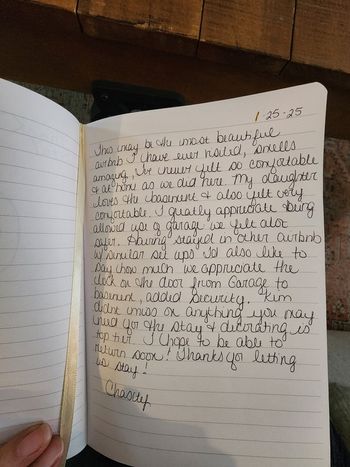 1-25-25
This may be the most beautiful
airbnb I have ever visited, smells
amazing, I've never felt so comfortable
& at home as we did here. My daughter
loves the basement & also felt very
comfortable. I greatly appreciate being
allowed use of garage we felt alot
safer. Having stayed in other airbnb
w/ similar set ups I'd also like to
say how much we appreciate the
lock on the door from Garage to
basment, added security. Kim
didnt miss on anything you may
need for the stay & decorating is
top tier. I hope to be able to
return soon! Thanks for letting
us stay!
Chasity